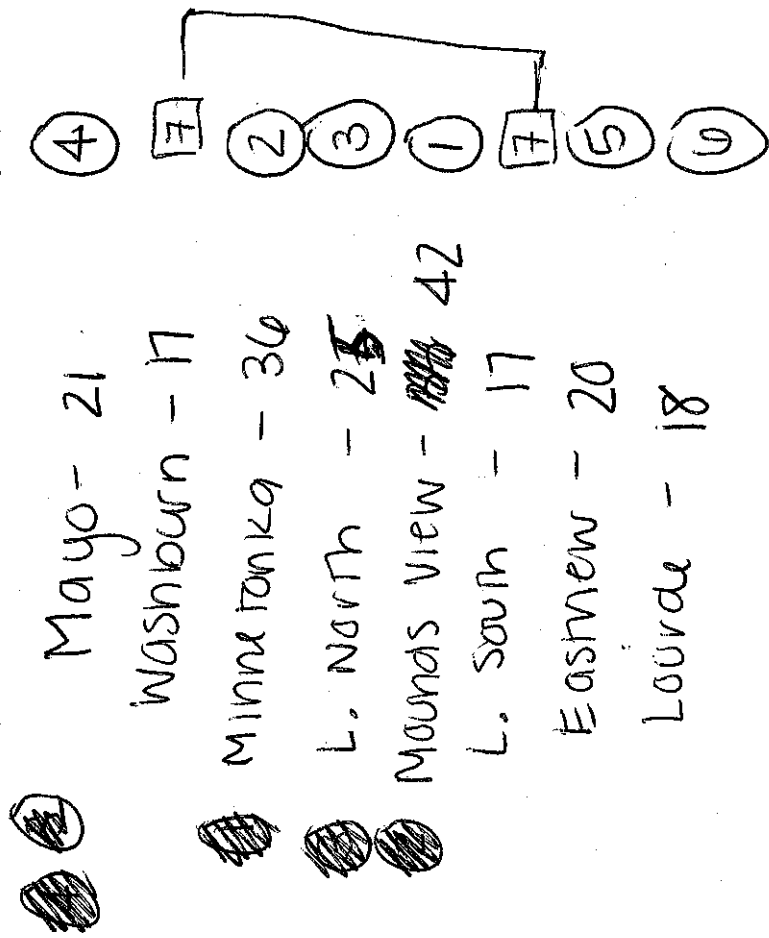 Mayo - 21 4
Washburn - 17 7
Minnetonka - 36 2
L. North - 25 3
Mounds View - 42 1
L. South - 17 7
Eastview - 20 5
Lourde - 18 6